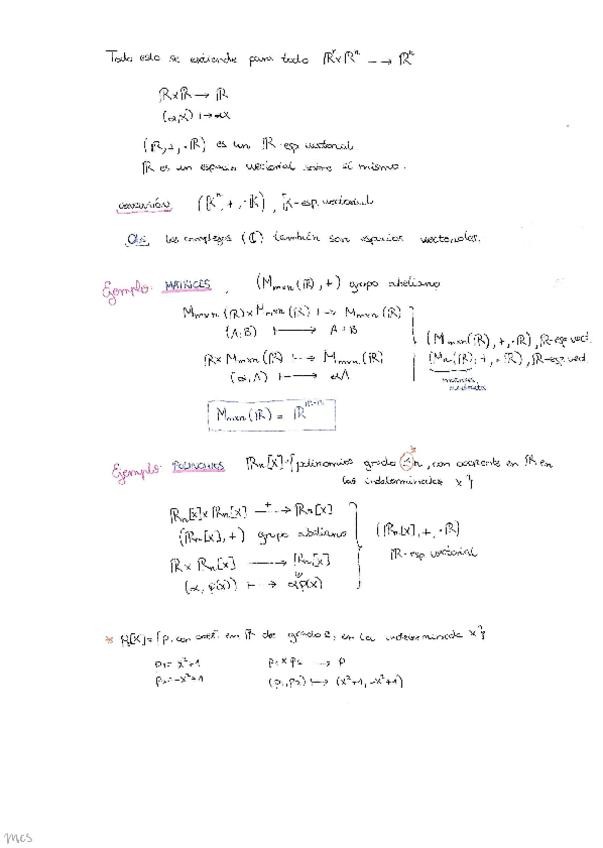 Todo esto se extiende para todo ℝxℝⁿ → ℝⁿ
ℝxℝ → ℝ
(α,x) ↦ αx
(ℝ,+,·ℝ) es un ℝ-esp vectorial
ℝ es un espacio vectorial sobre sí mismo.
(𝕂ⁿ,+,·𝕂), 𝕂-esp. vectorial
Los complejos (ℂ) también son espacios vectoriales.
Ejemplo: MATRICES, (Mmxn(ℝ),+) grupo abeliano
Mmxn(ℝ)xMmxn(ℝ) ↦ Mmxn(ℝ)
(A,B) ⟼ A+B
ℝxMmxn(ℝ) ↦ Mmxn(ℝ)
(α,A) ⟼ αA
(Mmxn(ℝ),+,·ℝ), ℝ-esp vect.
(Mn(ℝ),+,·ℝ), ℝ-esp vect
matrices
Mmxn(ℝ) = ℝᵐˣⁿ
Ejemplo: POLINOMIOS ℝn[x]={polinomios grado ≤n, con en ℝ en
las indeterminadas x}
ℝn[x]xℝn[x] —+→ ℝn[x]
(ℝn[x],+) grupo abeliano
ℝxℝn[x] ⟶ ℝn[x]
(α,p(x)) ↦ αp(x)
(ℝn[x],+,·ℝ)
ℝ-esp vectorial
* ℝ[x]={p. con coef. en ℝ de grado 2, en la indeterminada x}
p₁=x²+1 p₁xp₂ → p
p₂=-x²+1 (p₁,p₂) ↦ (x²+1,-x²+1)
MCS